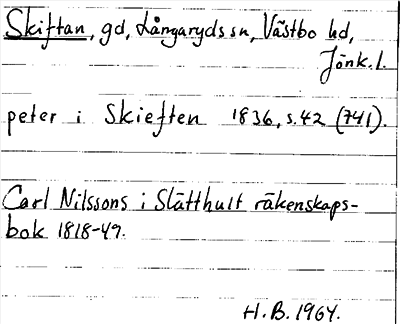 Skiftan, gd, Långaryds sn, Västbo hd,
Jönk. l.
peter i Skieften 1836, s. 42 (741).
Carl Nilssons i Slätthult räkenskaps-
bok 1818-49.
H. B. 1964.